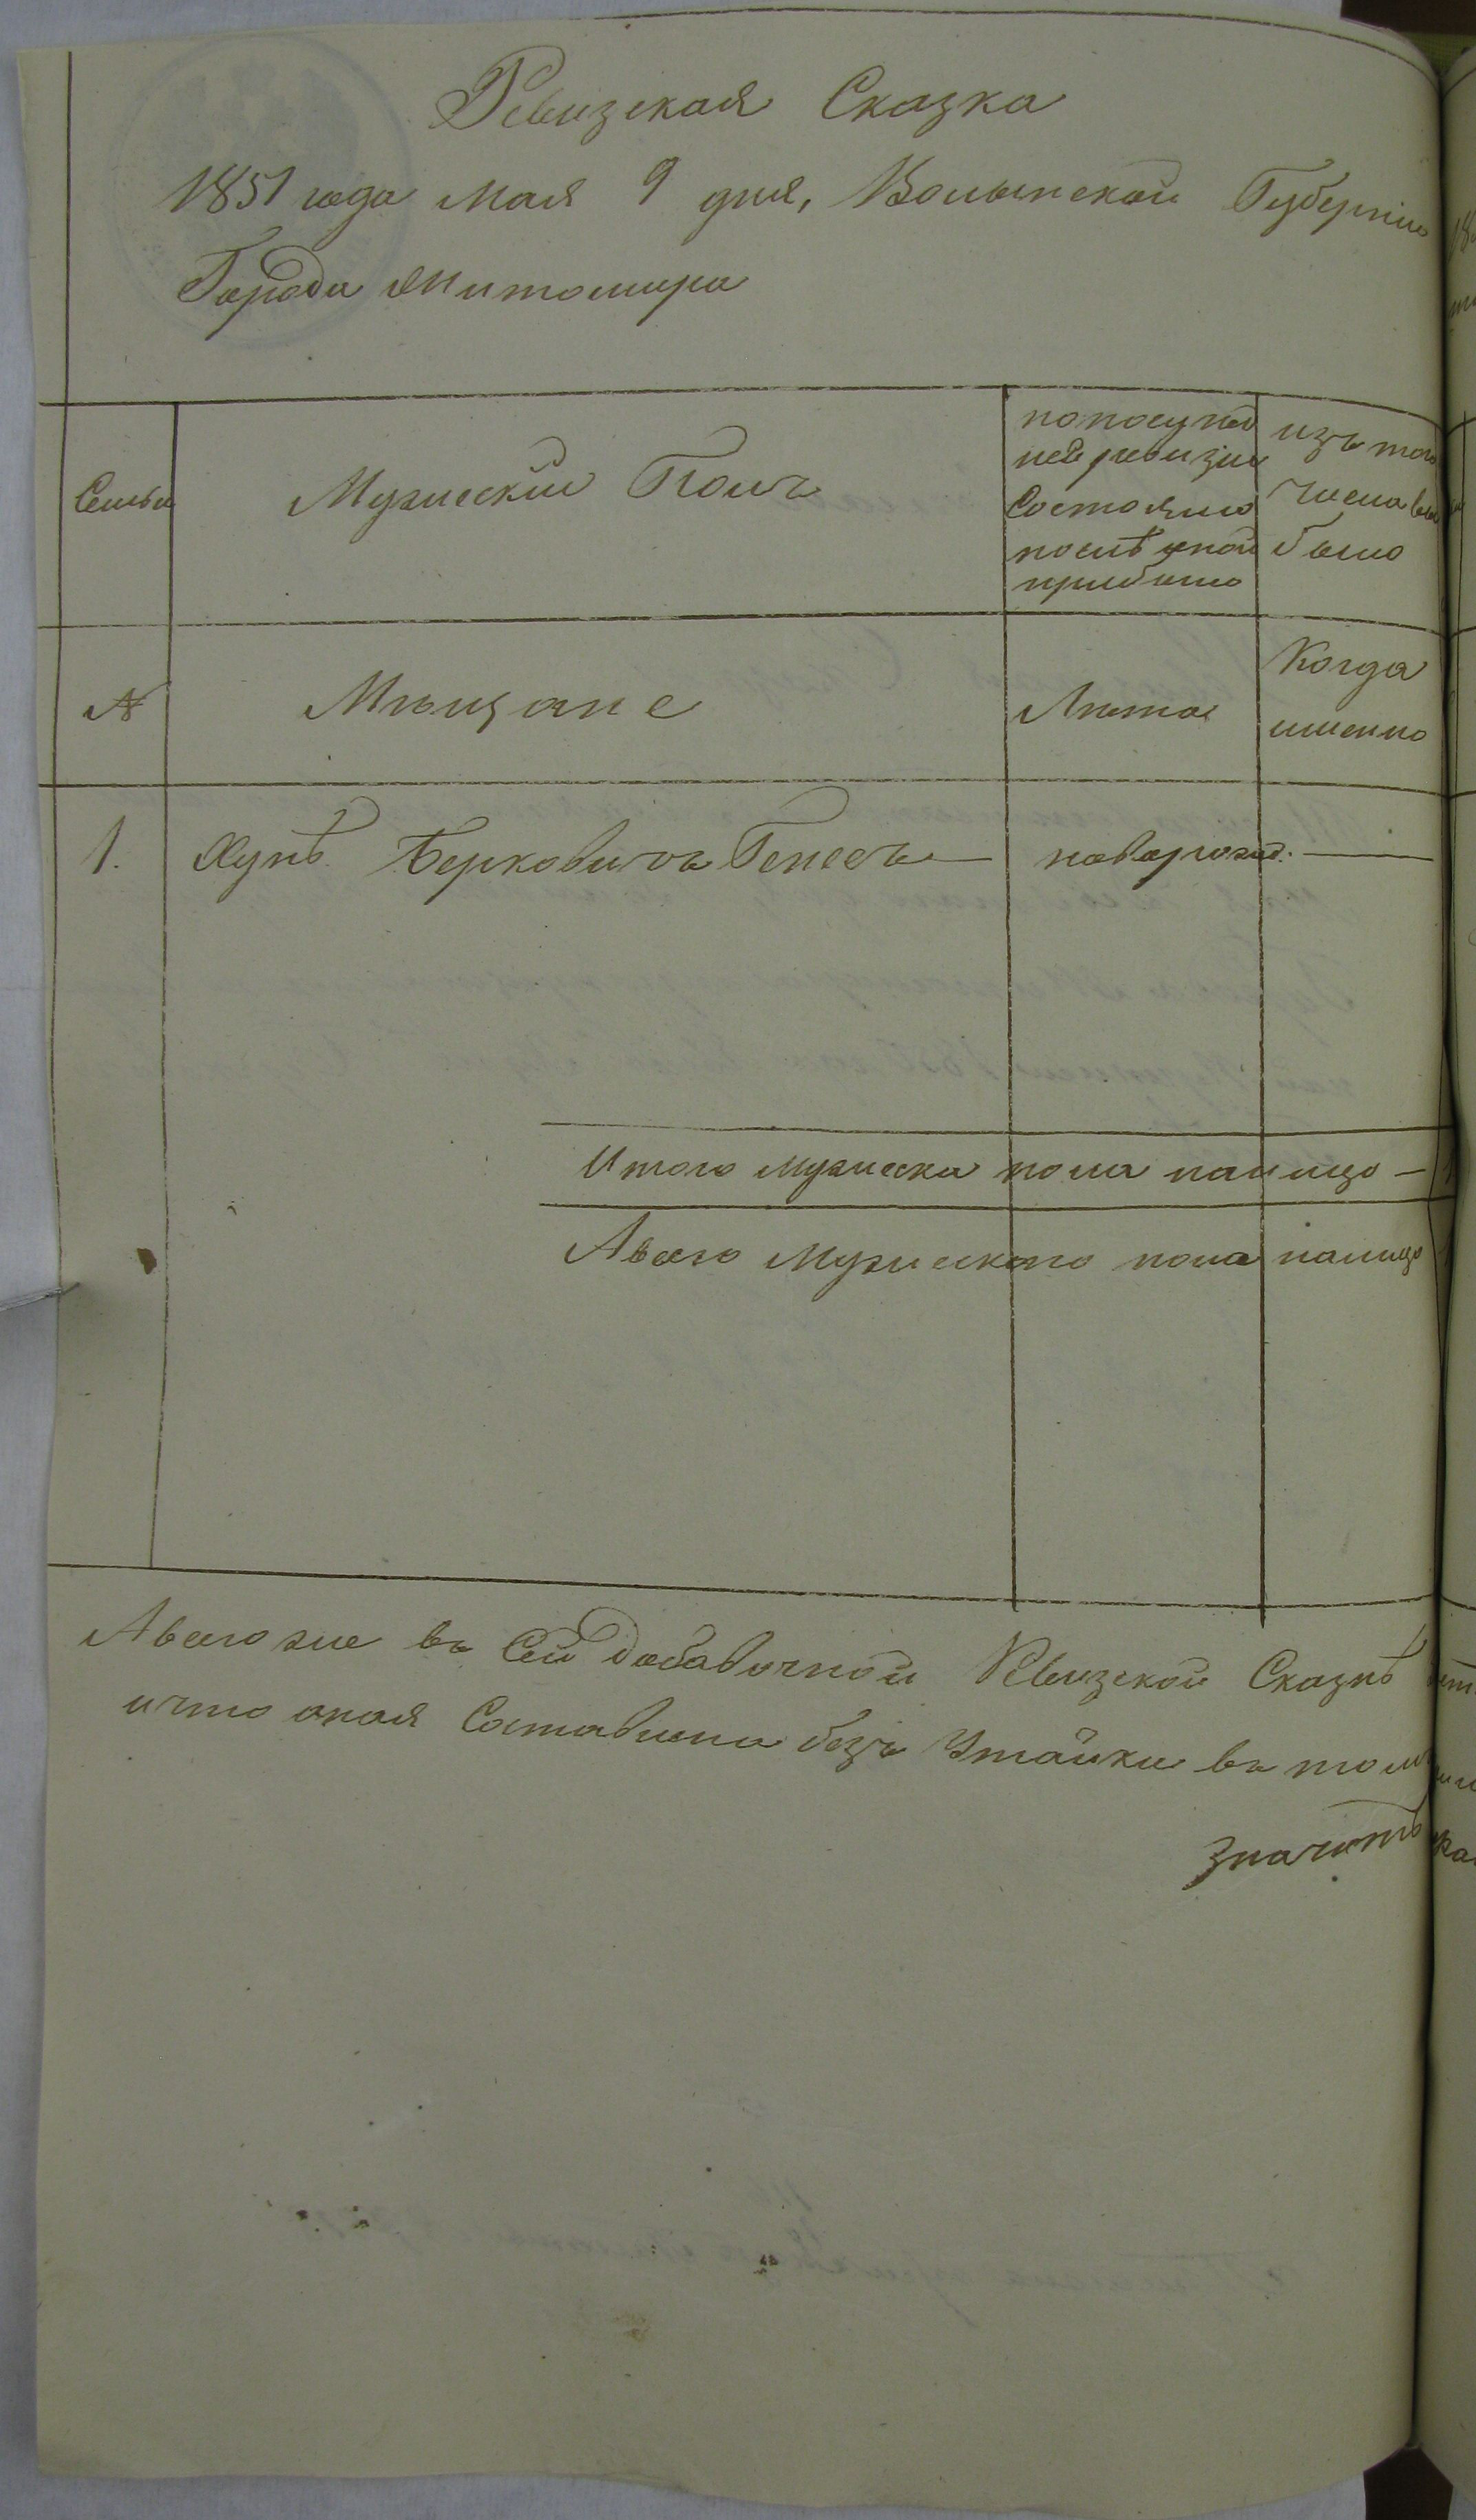 Ревизская Сказка
1851 года мая 9 дня, Волынской Губерніи
Города Житомира
Семьи
Мужеский Полъ
по последней ревизіи состояло после оной прибыло
изъ того числа выбыло
№
Мѣщане
Лѣта
Когда именно
1. Берковичъ
Итого мужеска пола налицо —
А всего мужескаго пола налицо
А всего же въ Сей добавочной Ревизской Сказкѣ
и что оная Составлена безъ Утайки въ томъ